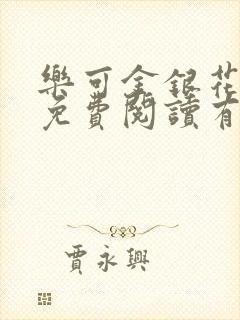 樂可金銀花
免費閱讀有
賈永興